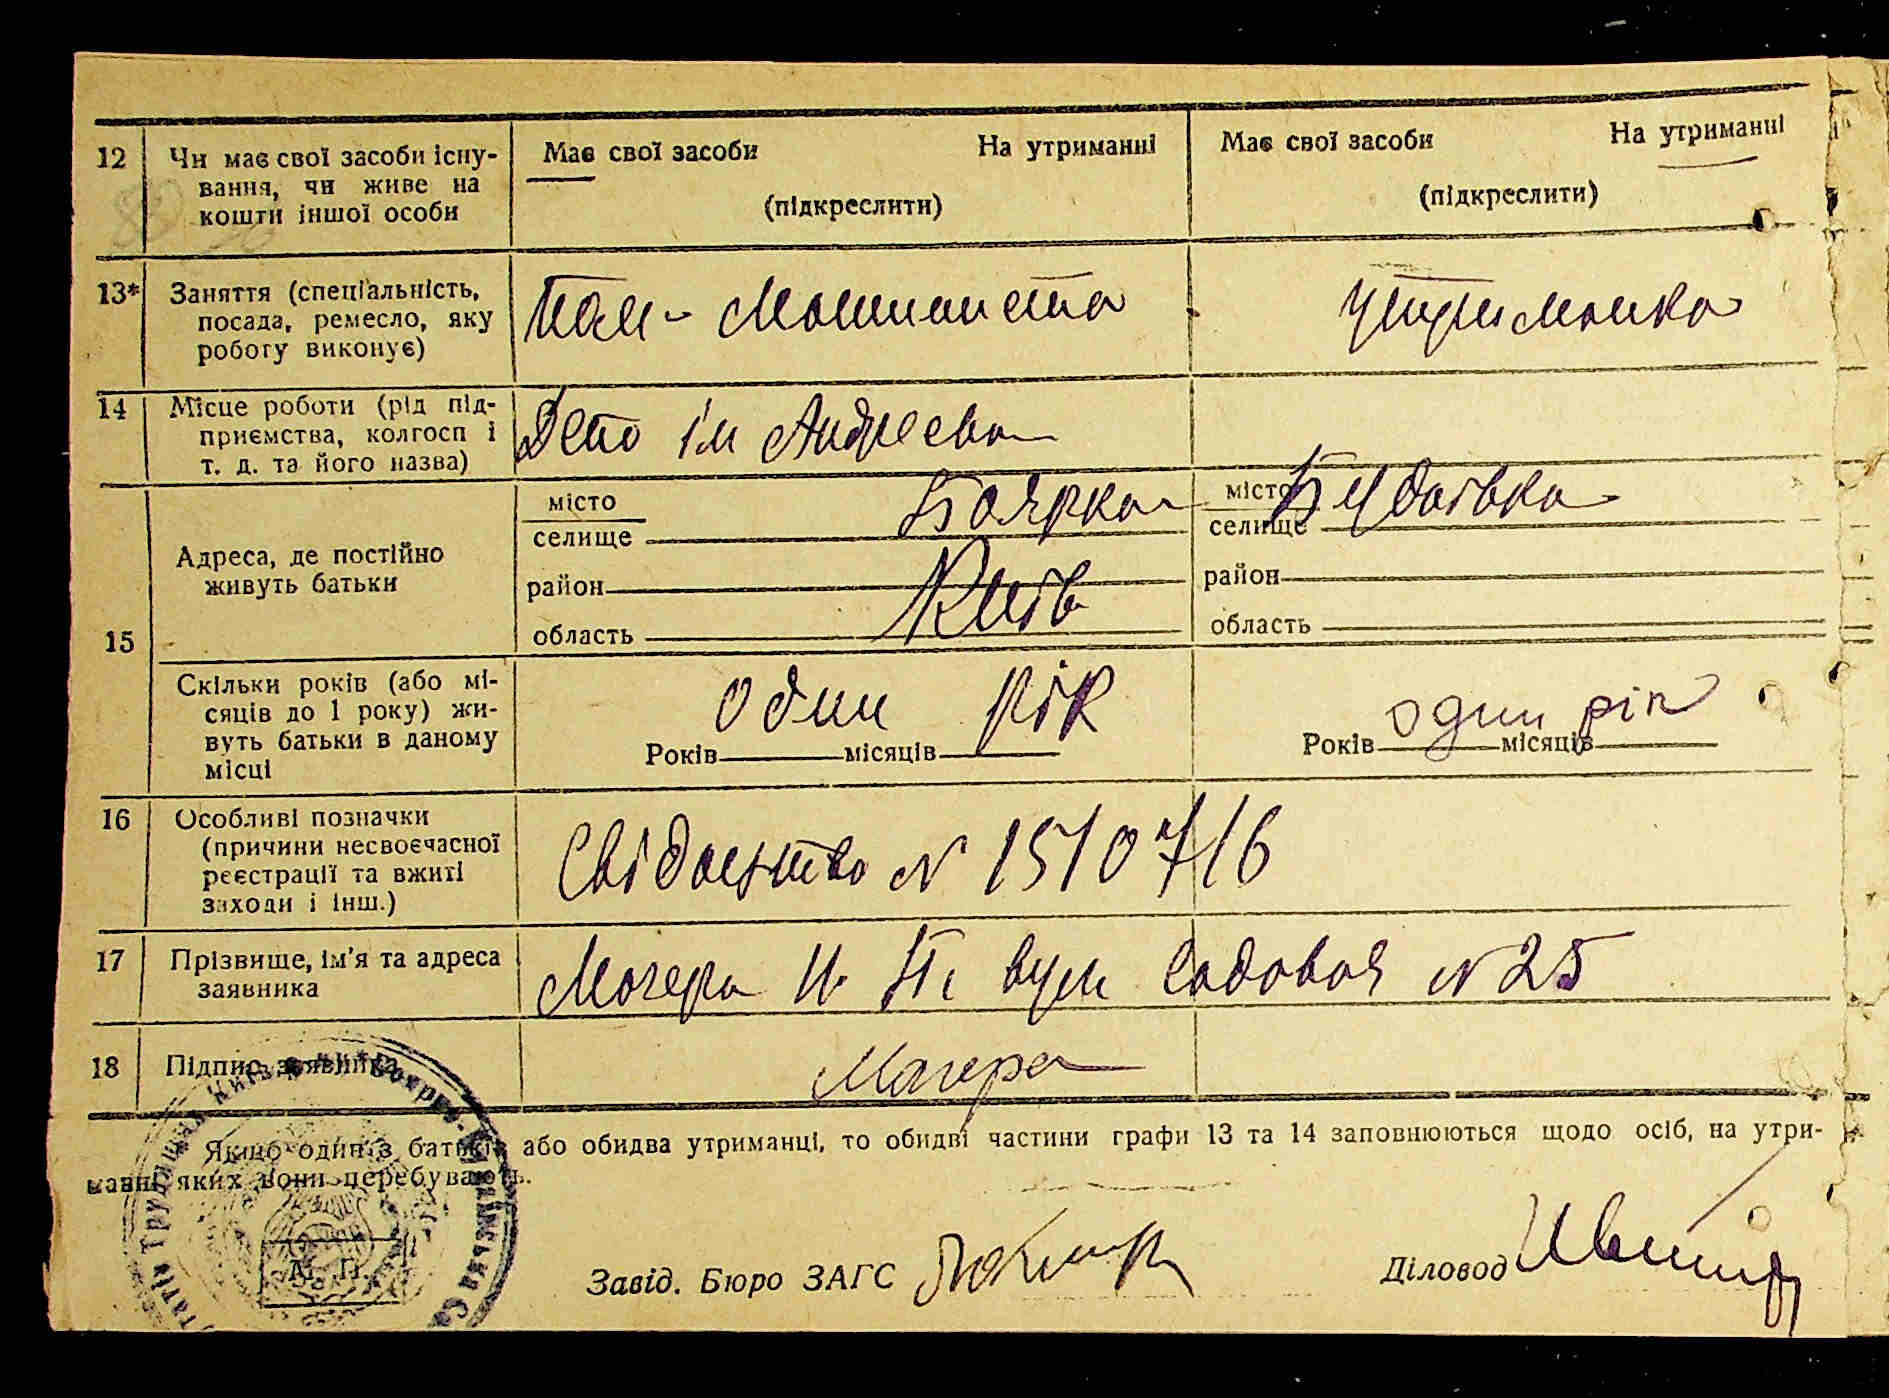 12 Чи має свої засоби існу- Має свої засоби На утриманні Має свої засоби На утриманні
вання, чи живе на
кошти іншої особи (підкреслити) (підкреслити)
13* Заняття (спеціальність,
посада, ремесло, яку Пом- Машиниста утриманка
роботу виконує)
14 Місце роботи (рід під-
приємства, колгосп і Депо ім Андреева
т. д. та його назва)
15 Адреса, де постійно
живуть батьки
місто Боярка місто Будаївка
селище селище
район район
Київ
область область
Скільки років (або мі-
сяців до 1 року) жи- один рік один рік
вуть батьки в даному Років місяців Років місяців
місці
16 Особливі позначки
(причини несвоєчасної Свідоцтво N 1510716
реєстрації та вжиті
заходи і інш.)
17 Прізвище, ім'я та адреса Мачера И. П. вул Садовая N 25
заявника
18 Підпис заявника Мачера
Якщо один з батьків або обидва утриманці, то обидві частини графи 13 та 14 заповнюються щодо осіб, на утри-
манні яких вони перебувають.
М. П.
Завід. Бюро ЗАГС Діловод